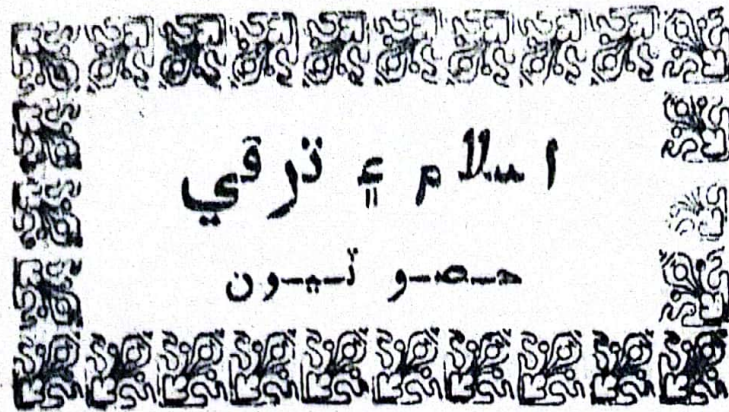 اسلام ۽ ترقي
حصو ٽيون